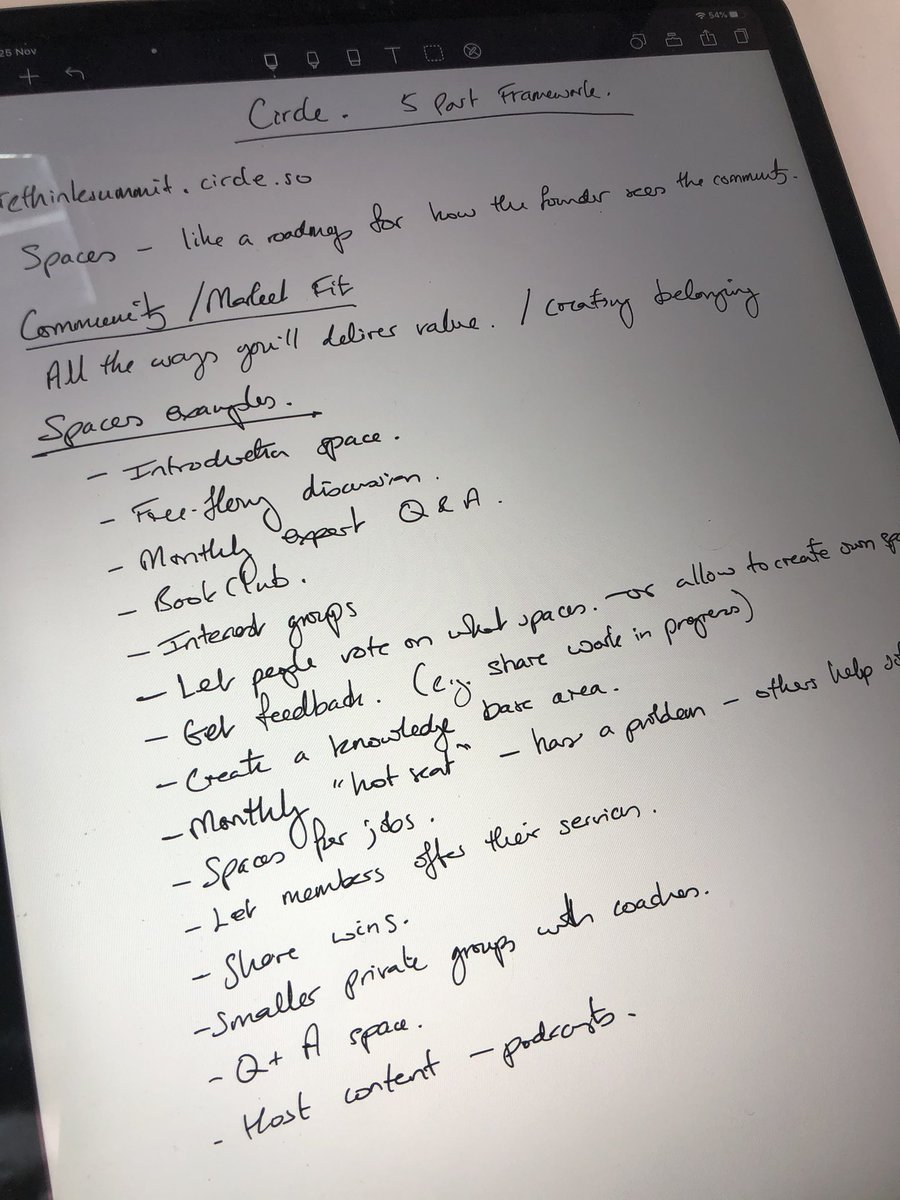 25 Nov
54%
T
Circle. 5 Part Framework.
rethinksummit.circle.so
Spaces - like a roadmap for how the founder sees the community.
Community / Market Fit
All the ways you'll deliver value. / creating belonging
Spaces examples.
- Introduction space.
- Free-flowing discussion.
- Monthly expert Q & A.
- Book Club.
- Interest groups
- Let people vote on what spaces. - or allow to create own
- Get feedback. (e.g. share work in progress)
- Create a knowledge base area.
- Monthly "hot seat" - has a problem - others help
- Spaces for jobs.
- Let members offer their services.
- Share wins.
- Smaller private groups with coaches.
- Q + A space.
- Host content - podcasts.